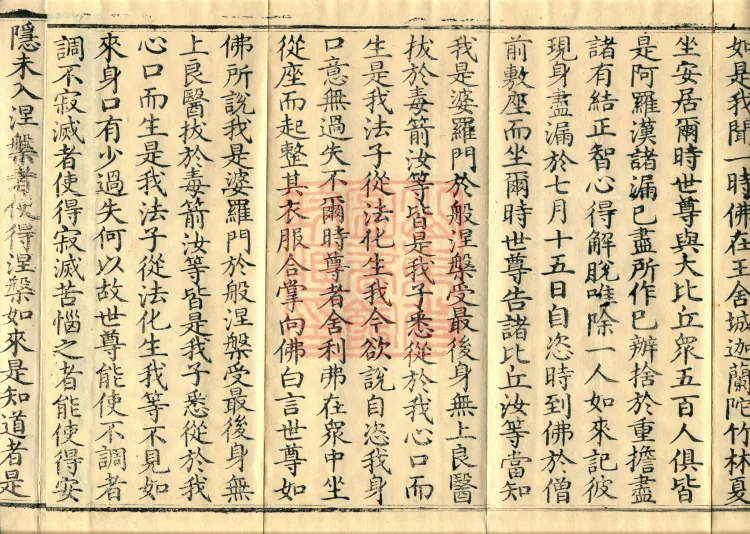 如是我聞一時佛在王舍城迦蘭陀竹林夏
坐安居爾時世尊與大比丘眾五百人俱皆
是阿羅漢諸漏已盡所作已辨捨於重擔盡
諸有結正智心得解脫唯除一人如來記彼
現身盡漏於七月十五日自恣時到佛於僧
前敷座而坐爾時世尊告諸比丘汝等當知
我是婆羅門於般涅槃受最後身無上良醫
拔於毒箭汝等皆是我子悉從於我心口而
生是我法子從法化生我今欲說自恣我身
口意無過失不爾時尊者舍利弗在眾中坐
從座而起整其衣服合掌向佛白言世尊如
佛所說我是婆羅門於般涅槃受最後身無
上良醫拔於毒箭汝等皆是我子悉從於我
心口而生是我法子從法化生我等不見如
來身口有少過失何以故世尊能使不調者
調不寂滅者使得寂滅苦惱之者能使得安
隱未入涅槃者使得涅槃如來是知道者是